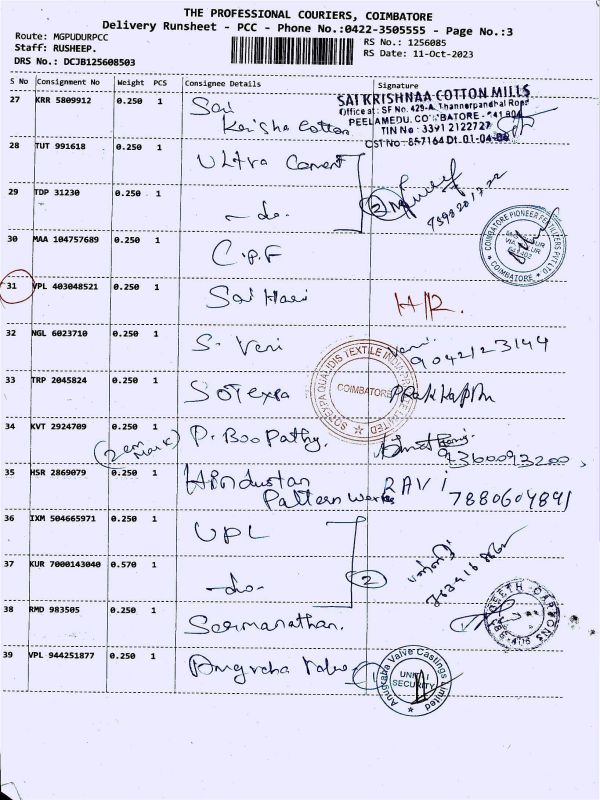 THE PROFESSIONAL COURIERS, COIMBATORE
Delivery Runsheet - PCC - Phone No.:0422-3505555 - Page No.:3
Route: MGPUDURPCC
Staff: RUSHEEP.
DRS No.: DCJB125608503
RS No.: 1256085
RS Date: 11-Oct-2023
S No Consignment No Weight PCS Consignee Details Signature
27 KRR 5809912 0.250 1 Sai
Krisha Cotton
SAI KRISHNAA COTTON MILLS
Office at: SF No. 429-A, Thannerpandhal Road
PEELAMEDU, COIMBATORE - 641 004
TIN No : 3391 2122727
CST No : 857164 Dt. 01-04-
28 TUT 991618 0.250 1 Ultra Cement
29 TDP 31230 0.250 1 -do.
2
30 MAA 104757689 0.250 1 C.P.F
COIMBATORE PIONEER FERTILIZERS PVT LTD
COIMBATORE
31 VPL 403048521 0.250 1 Sai Hari H/R.
32 NGL 6023710 0.250 1 S. Veni Veni
9042123144
33 TRP 2045824 0.250 1 Sotexpa
SOTEXPA QUALIDIS TEXTILE
COIMBATORE
34 KVT 2924709 0.250 1 P. Boopathy.
9360093200,
35 HSR 2869079 0.250 1 Hindustan
Pattern Works
RAVI
7880604891
36 IXM 504665971 0.250 1 UPL
37 KUR 7000143040 0.570 1 -do-
2
38 RMD 983505 0.250 1 Sormanathan.
39 VPL 944251877 0.250 1 Anugraha Valve
1
Anugraha Valve Castings Limited
UNIT I
SECURITY